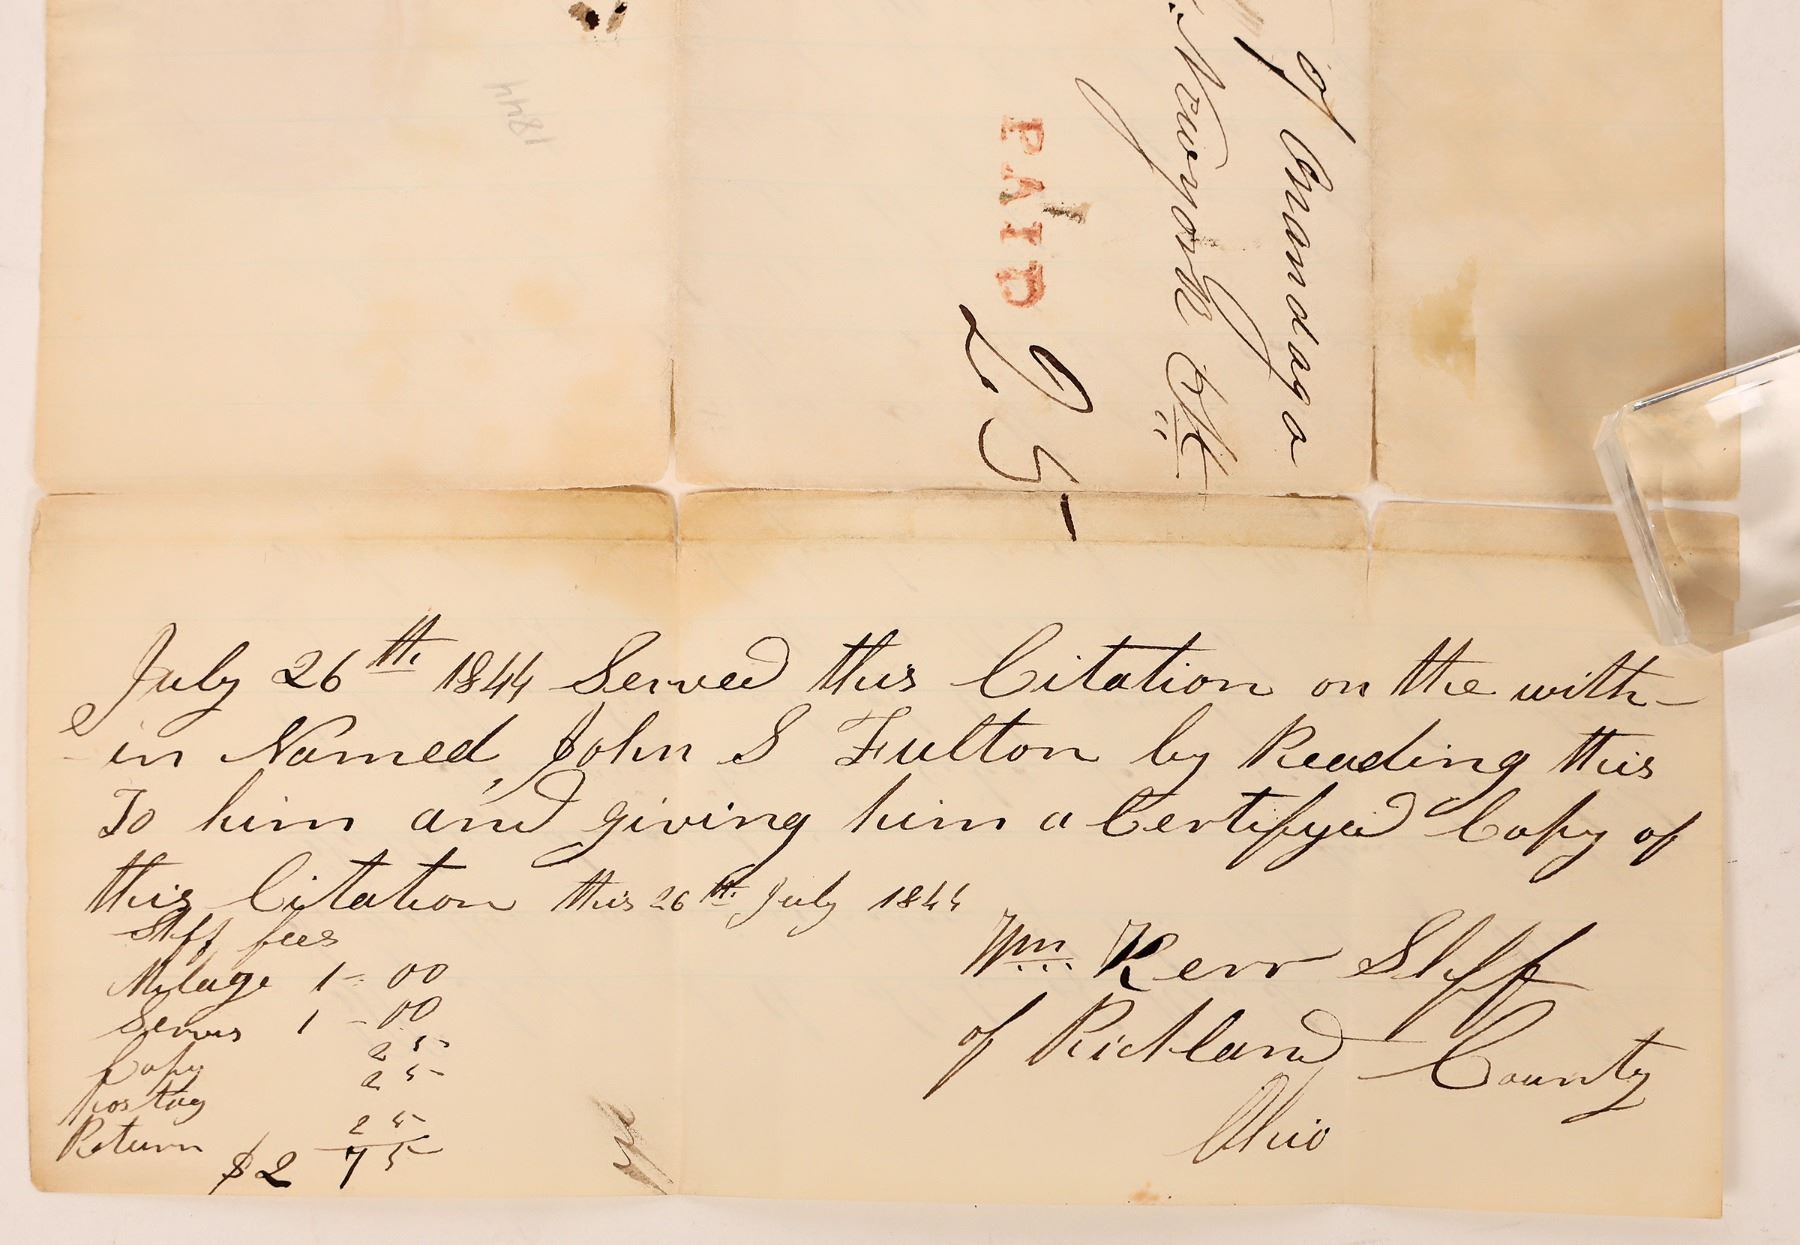 1844
PAID
25
of Onondago
Newyork
July 26th 1844 Served this Citation on the with-
in Named, John S Fulton by Reading this
To him and giving him a Certifyed Copy of
this Citation this 26th July 1844
Shff fees
Milage 1 = 00
Servis 1 - 00
Copy 25
Postag 25
Return 25
$2 75
Wm Kerr Shff
of Richland County
Ohio